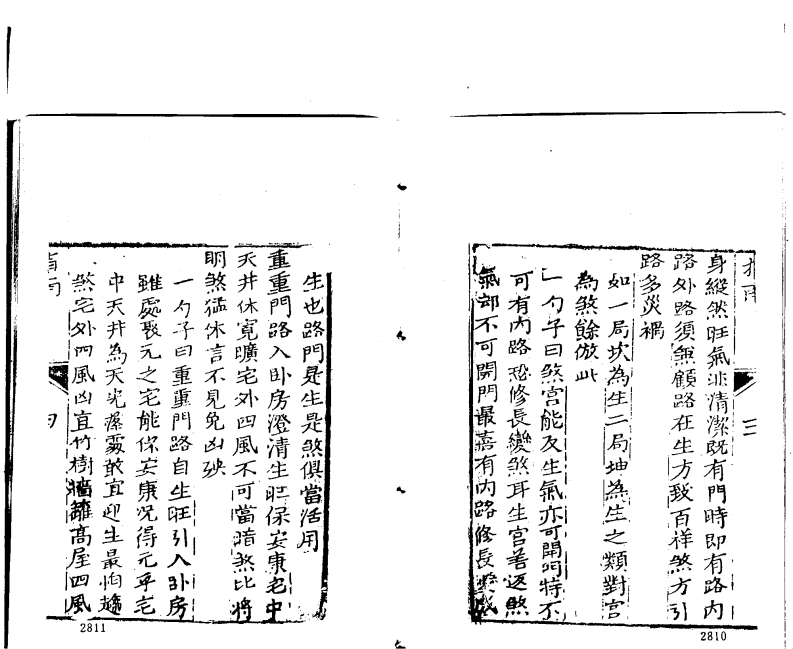 指南
三
身縱然旺氣非清潔既有門時即有路內
路外路須無顧路在生方致百祥煞方引
路多災禍
如一局坎為生二局坤為生之類對宮
為煞餘倣此
一勺子曰煞宮能及生氣亦可開門特不
可有內路恐修長變煞耳生宮若返煞
氣却不可開門最嘉有內路修長
2810
生也路門是生是煞俱當活用
重重門路入卧房澄清生旺保安康宅中
天井休寬曠宅外四風不可當暗煞比將
明煞猛休言不見免凶殃
一勺子曰重重門路自生旺引入卧房
雖處衰元之宅能保安康况得元乎宅
中天井為天光 敢宜迎生最怕
煞宅外四風凶宜竹樹牆籬高屋四風
指南
四
2811